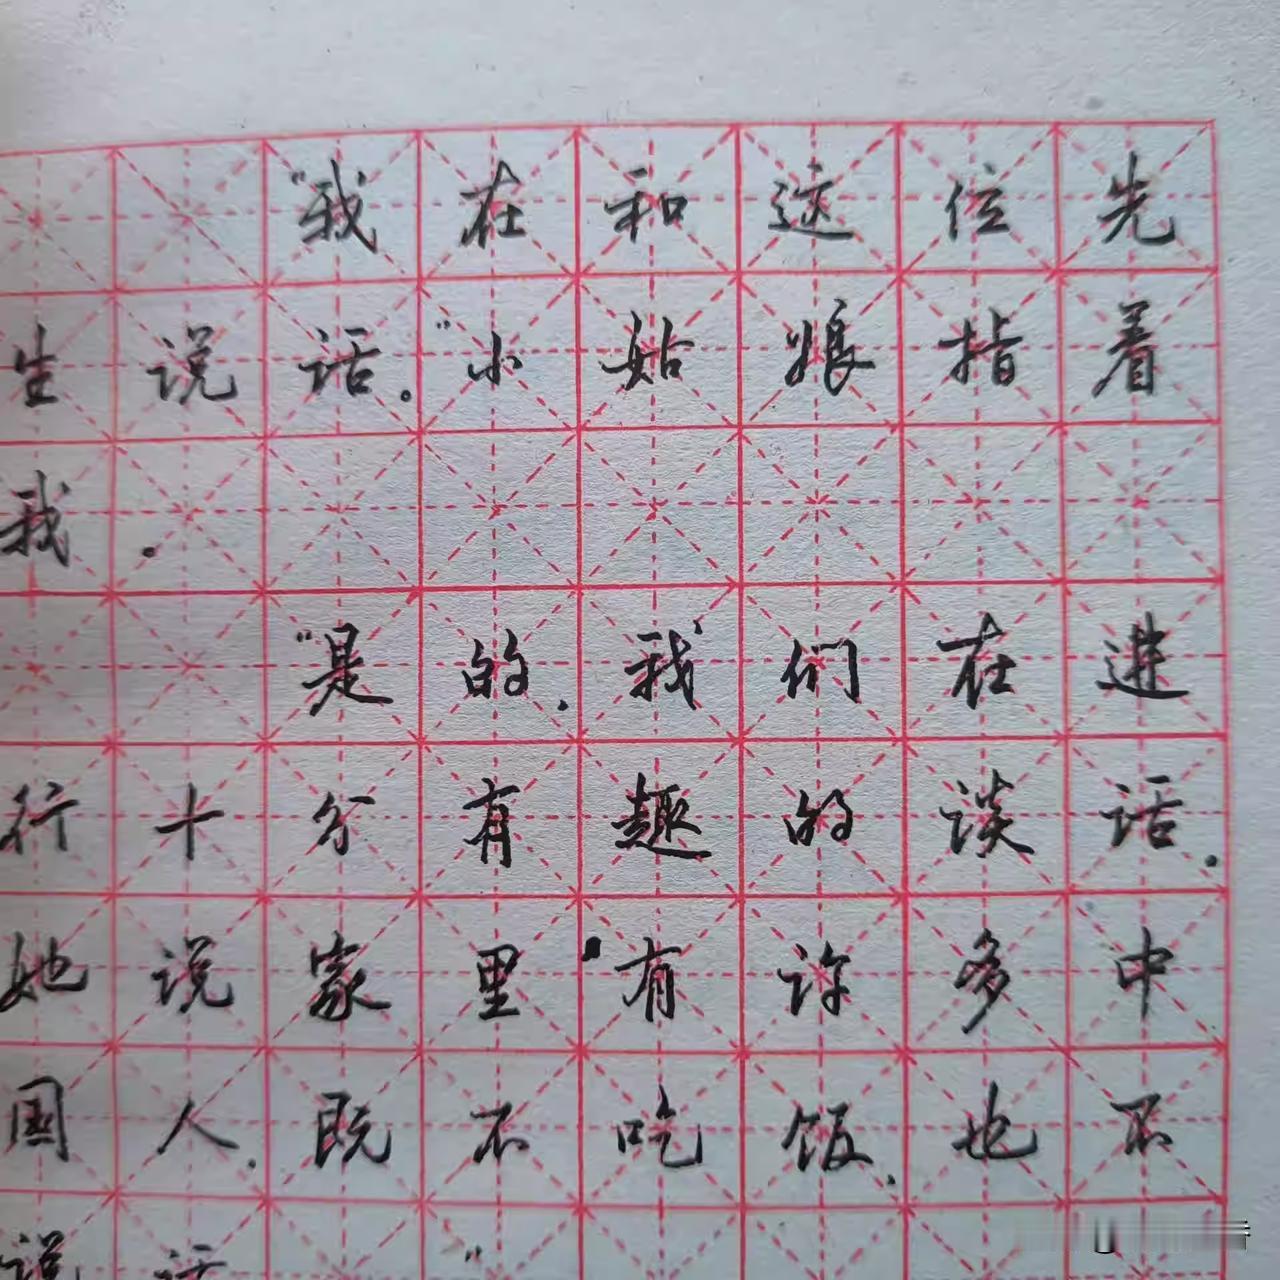 “我在和这位先
生说话。”小姑娘指着
我.
“是的.我们在进
行十分有趣的谈话.
她说家里有许多中
国人.既不吃饭.也不
说话”